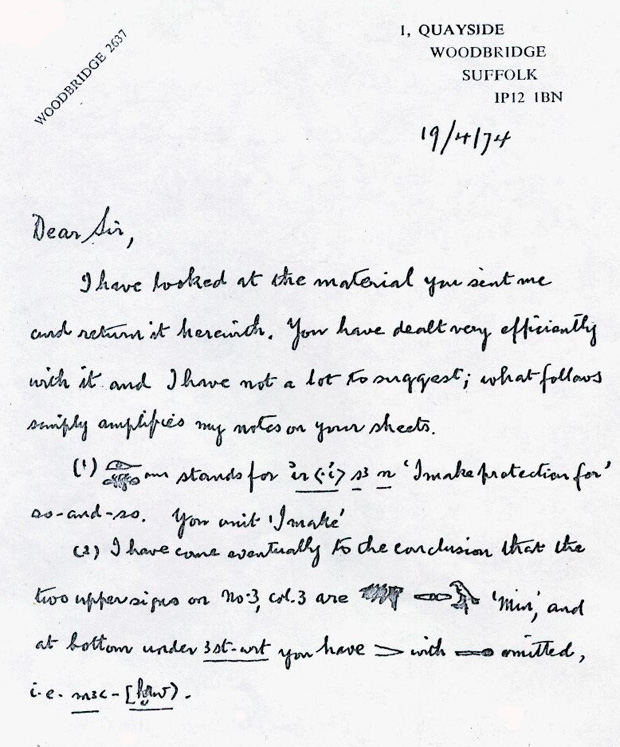 WOODBRIDGE 2637
1, QUAYSIDE
WOODBRIDGE
SUFFOLK
IP12 1BN
19/4/74
Dear Sir,
I have looked at the material you sent me
and return it herewith. You have dealt very efficiently
with it and I have not a lot to suggest; what follows
simply amplifies my notes on your sheets.
(1) stands for ir <·i> s3 n 'I make protection for'
so-and-so. You omit 'I make'
(2) I have come eventually to the conclusion that the
two upper signs on No. 3, col. 3 are 'Min', and
at bottom under 3st-wrt you have with omitted,
i.e.